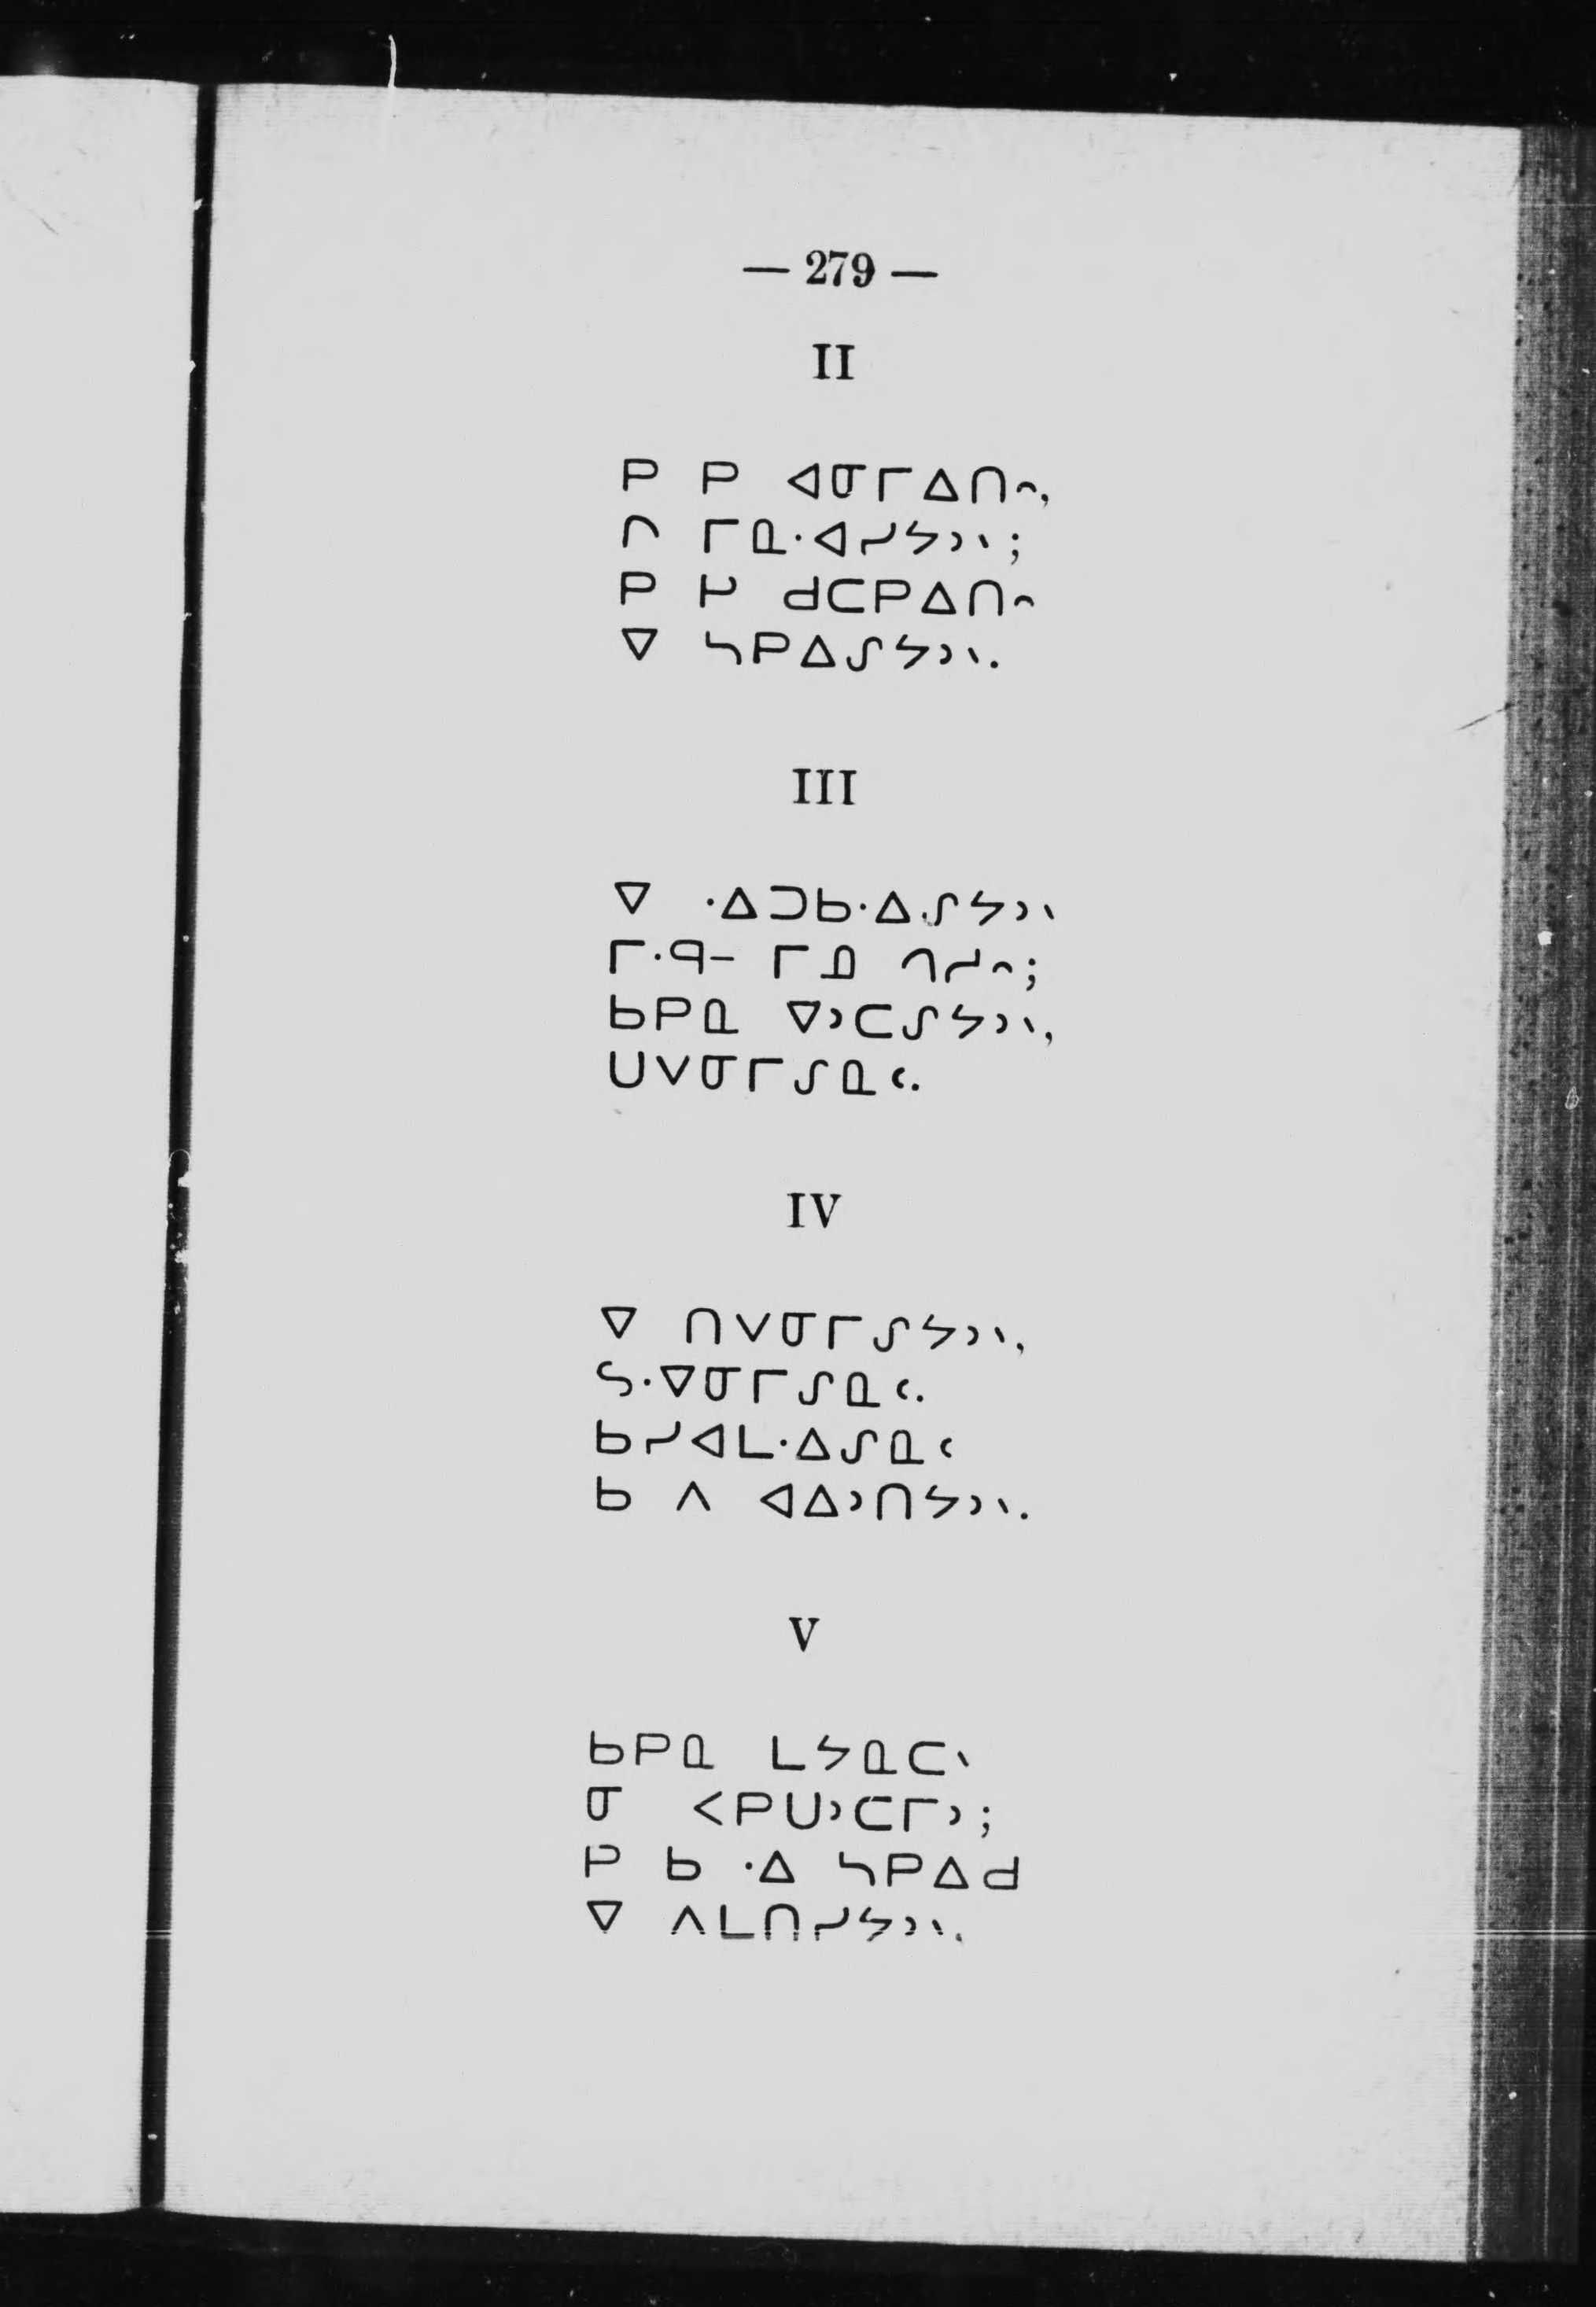 — 279 —
II
ᑭ ᑭ ᐊᓂᒥᐃᑎᐢ,
ᒋ ᒥᓇᐧᐊᓯᔭᐣᐠ;
ᑭ ᔨ ᑯᑕᑭᐃᑎᐢ
ᐁ ᓴᑭᐃᔑᔭᐣᐠ.
III
ᐁ ᐧᐃᑐᑲᐧᐃᔑᔭᐣᐠ
ᒥᐧᑫᐨ ᒥᓄ ᒉᓱᐢ;
ᑲᑭᓇ ᐁᐣᑕᔑᔭᐣᐠ,
ᑌᐯᓂᒥᔑᓇᒼ.
IV
ᐁ ᑎᐯᓂᒥᔑᔭᐣᐠ,
ᔕᐧᐁᓂᒥᔑᓇᒼ.
ᑲᓯᐊᒪᐧᐃᔑᓇᒼ
ᑲ ᐱ ᐊᐃᐣᑎᔭᐣᐠ.
V
ᑲᑭᓇ ᒪᔭᓇᑕᐠ
ᓂ ᐸᑭᑌᐣᑕᒥᐣ;
ᑭ ᑲ ᐧᐃ ᓴᑭᐃᑯ
ᐁ ᐱᒪᑎᓯᔭᐣᐠ.